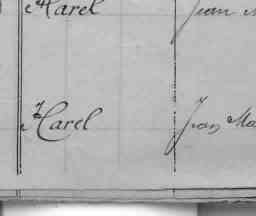 Harel Jean
Harel Jean Ma